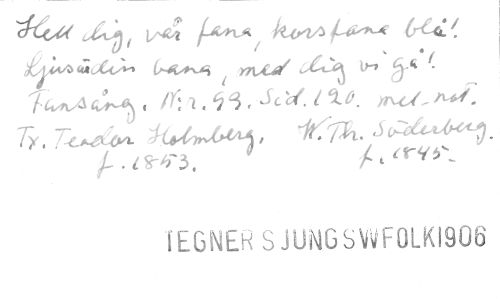 Hell dig, vår fana, korsfana blå!
Ljus är din bana, med dig vi gå!
Fansång. N:r. 99. Sid. 120. mel-not.
Tx. Teodor Holmberg. W. Th. Söderberg.
f. 1853. f. 1845.
TEGNER SJUNG SW FOLK 1906